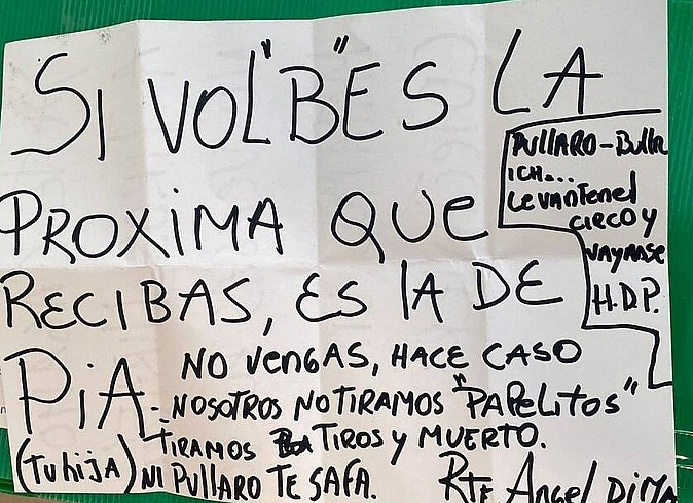 SI VOL"B"ES LA
PROXIMA QUE
RECIBAS, ES LA DE
PIA.-
(tu hija)
PULLARO-Bullr
ICH...
LevanTenel
CIRCO y
VAYANSE
H.D.P.
NO VENGAS, HACE CASO
NOSOTROS NO TIRAMOS "PAPELITOS"
TIRAMOS TIROS y MUERTO.
NI PULLARO TE SAFA.
RTE Angel DIMA